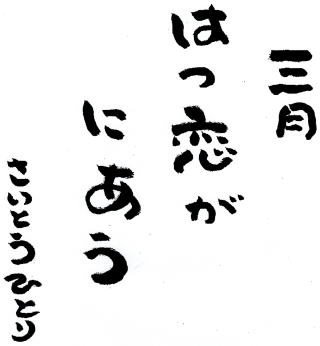 三月
はつ恋が
にあう
さいとうひとり